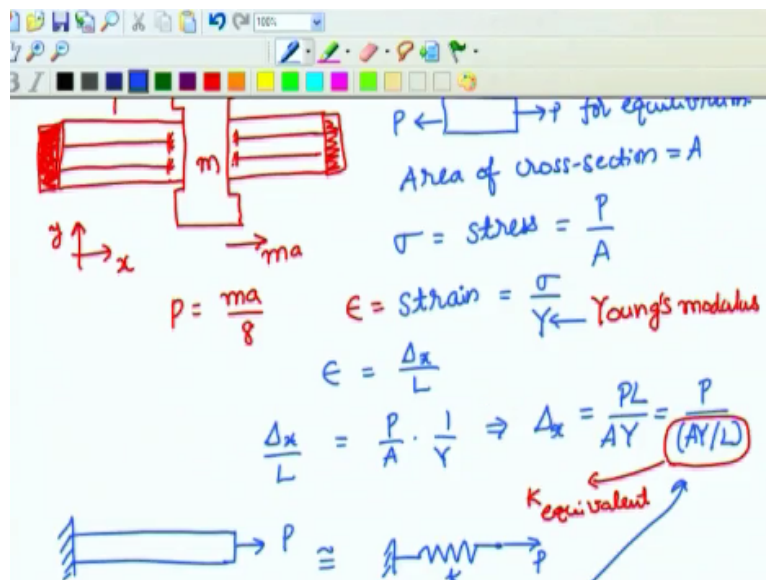 100%
B I
P ← → P for equilibrium
m
Area of cross-section = A
y
x
ma
σ = stress = P/A
P = ma/8
ϵ = strain = σ/Y ← Young's modulus
ϵ = Δx/L
Δx/L = P/A · 1/Y ⇒ Δx = PL/AY = P/(AY/L)
K equivalent
P ≅ P
k